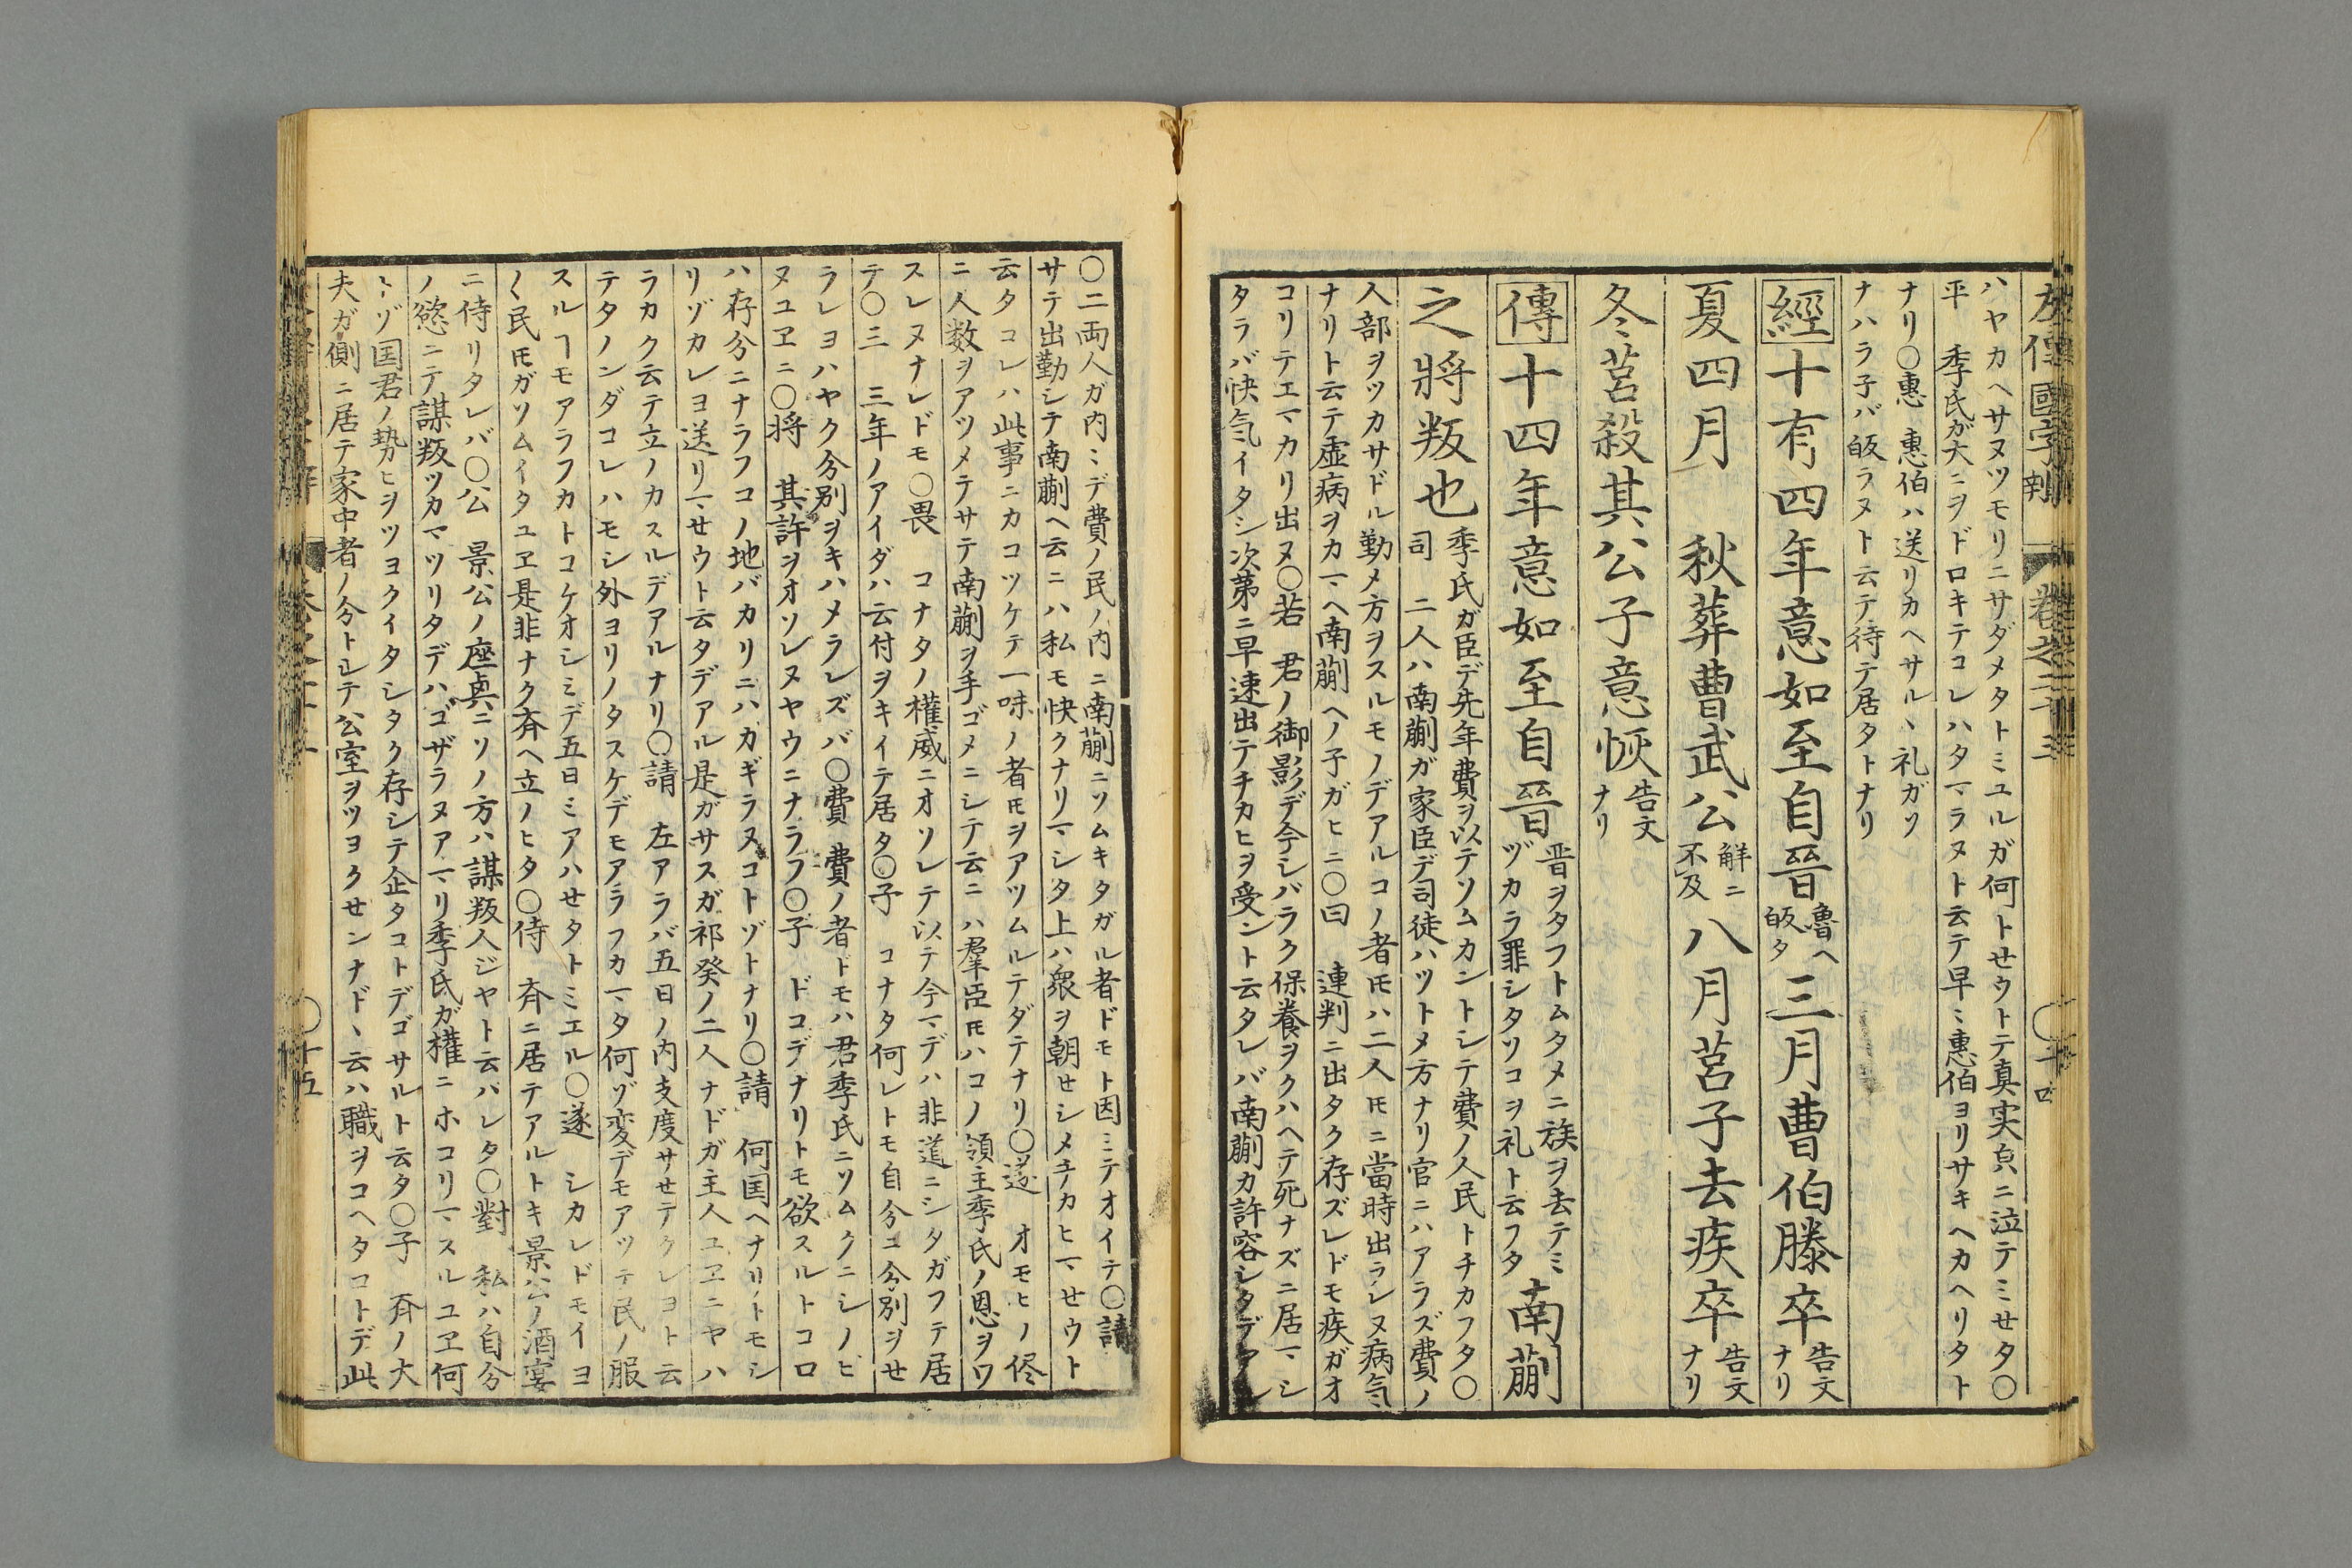 左傳國字辨 卷之二十三 〇十四
ハヤカヘサヌツモリニサダメタトミユルガ何トせウトテ真実㒵ニ泣テミせタ〇
平 季氏ガ大ニヲドロキテコレハタマラヌト云テ早ミ惠伯ヨリサキヘカヘリタト
ナリ〇惠 惠伯ハ送リカヘサルヽ礼ガソ
ナハラ子バ皈ラヌト云テ待テ居タトナリ
經十有四年意如至自晉魯ヘ皈タ三月曹伯滕卒告文ナリ
夏四月 秋葬曹武公解ニ不及八月莒子去疾卒告文ナリ
冬莒殺其公子意恢告文ナリ
傳十四年意如至自晉晋ヲタフトムタメニ族ヲ去テミヅカラ罪シタソコヲ礼ト云フタ南蒯
之將叛也季氏ガ臣デ先年費ヲ以テソムカントシテ費ノ人民トチカフタ〇
司 二人ハ南蒯ガ家臣デ司徒ハツトメ方ナリ官ニハアラズ費ノ
人部ヲツカサドル勤メ方ヲスルモノデアルコノ者𪜈ハ二人𪜈ニ當時出ラレヌ病気
ナリト云テ虚病ヲカマヘ南蒯ヘノ子ガヒニ〇曰 連判ニ出タク存ズレドモ疾ガオ
コリテエマカリ出ヌ〇若 君ノ御影デ今シバラク保養ヲクハヘテ死ナズニ居マシ
タラバ快気イタシ次第ニ早速出テチカヒヲ受ント云タレバ南蒯カ許容シタデアル
〇二両人ガ内ミデ費ノ民ノ内ニ南蒯ニソムキタガル者ドモト因ミテオイテ〇請
サテ出勤シテ南蒯ヘ云ニハ私モ快クナリマシタ上ハ衆ヲ朝せシメチカヒマせウト
云タコレハ此事ニカコツケテ一味ノ者𪜈ヲアツムルテダテナリ〇遂 オモヒノ侭
ニ人数ヲアツメテサテ南蒯ヲ手ゴメニシテ云ニハ羣臣𪜈ハコノ領主季氏ノ恩ヲワ
スレヌナレドモ〇畏 コナタノ權威ニオソレテ以テ今マデハ非道ニシタガフテ居
テ〇三 三年ノアイダハ云付ヲキイテ居タ〇子 コナタ何レトモ自分ニ分別ヲせ
ラレヨハヤク分別ヲキハメラレズバ〇費 費ノ者ドモハ君季氏ニソムクニシノビ
ヌユヱニ〇将 其許ヲオソレヌヤウニナラフ〇子 ドコデナリトモ欲スルトコロ
ハ存分ニナラフコノ地バカリニハカギラヌコトゾトナリ〇請 何国ヘナリトモシ
リゾカレヨ送リマせウト云タデアル是ガサスガ祁癸ノ二人ナドガ主人ユヱニヤハ
ラカク云テ立ノカスルデアルナリ〇請 左アラバ五日ノ内支度サせテクレヨト云
テタノンダコレハモシ外ヨリノタスケデモアラフカマタ何ゾ変デモアツテ民ノ服
スルヿモアラフカトコケオシミデ五日ミアハせタトミエル〇遂 シカレドモイヨ
〱民𪜈ガソムイタユヱ是非ナク斉ヘ立ノヒタ〇侍 斉ニ居テアルトキ景公ノ酒宴
ニ侍リタレバ〇公 景公ノ座㒵ニソノ方ハ謀叛人ジヤト云バレタ〇對 私ハ自分
ノ慾ニテ謀叛ツカマツリタデハゴザラヌアマリ季氏ガ權ニホコリマスルユヱ何
トゾ国君ノ勢ヒヲツヨクイタシタク存シテ企タコトデゴサルト云タ〇子 斉ノ大
夫ガ側ニ居テ家中者ノ分トシテ公室ヲツヨクせンナドヽ云ハ職ヲコヘタコトデ此
〇十五